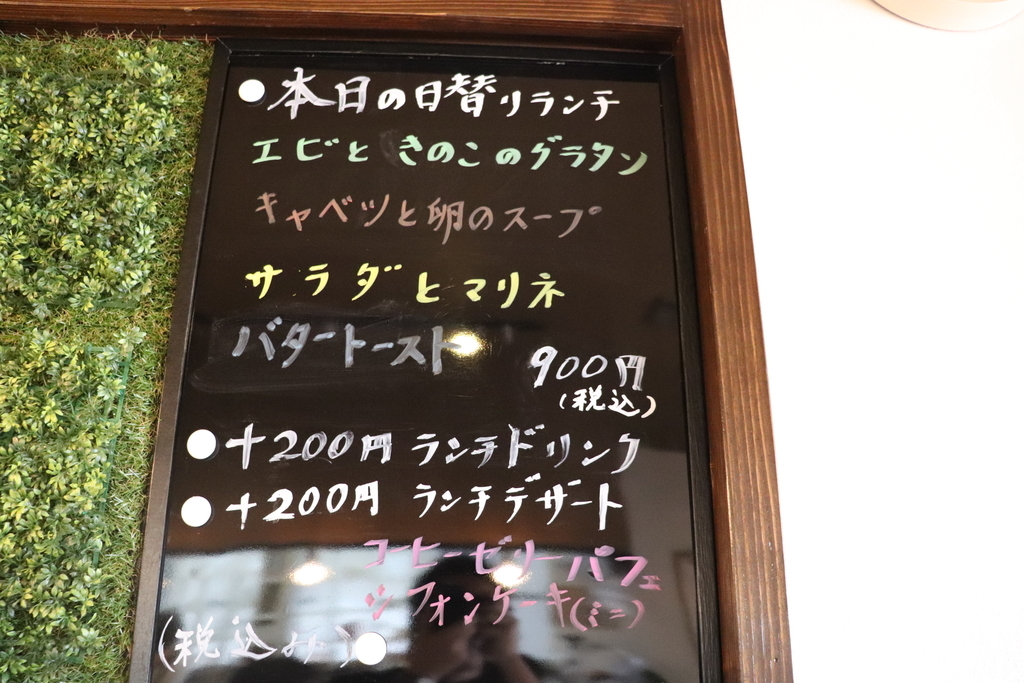 本日の日替りランチ
エビときのこのグラタン
キャベツと卵のスープ
サラダとマリネ
バタートースト
900円
(税込)
+200円 ランチドリンク
+200円 ランチデザート
コーヒーゼリーパフェ
シフォンケーキ(ミニ)
(税込み)